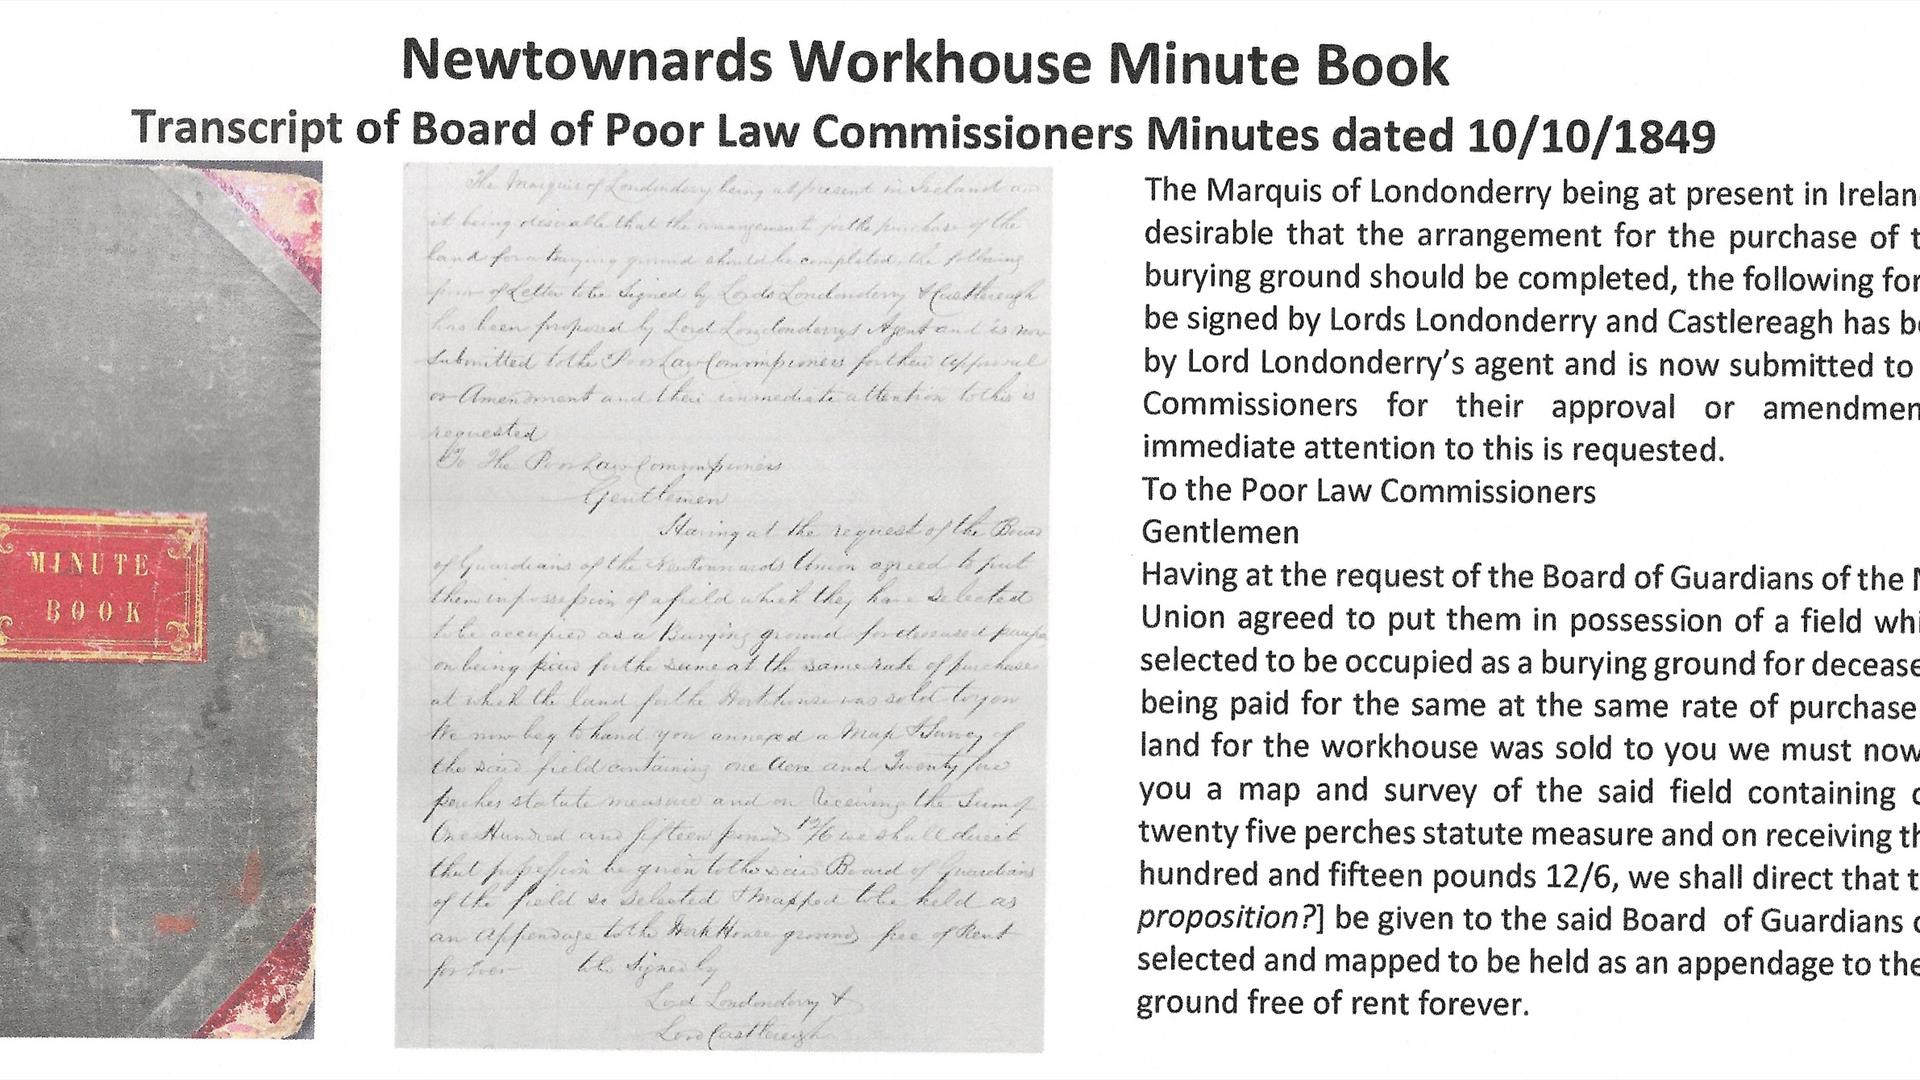 Newtownards Workhouse Minute Book
Transcript of Board of Poor Law Commissioners Minutes dated 10/10/1849
MINUTE
BOOK
The Marquis of Londonderry being at present in Ireland an
it being desirable that the arrangement for the purchase of the
land for a burying ground should be completed, the following
form of Letter to be Signed by Lords Londonderry & Castlereagh
has been proposed by Lord Londonderrys Agent and is now
submitted to the Poor Law Commissioners for their approval
or Amendment and their immediate attention to this is
requested
To The Poor Law Commissioners
Gentlemen
Having at the request of the Board
of Guardians of the Newtownards Union agreed to put
them in possession of a field which they have selected
to be occupied as a Burying ground for deceased paupe
on being paid for the same at the same rate of purchase
at which the land for the Workhouse was sold to you
We now beg to hand you annexed a Map & Survey of
the said field containing one Acre and Twenty five
perches statute measure and on Receiving the Sum of
One Hundred and fifteen pounds 12/6 we shall direct
that possession be given to the said Board of Guardians
of the field so selected & mapped to be held as
an Appendage to the Work House grounds free of Rent
for ever to be Signed by
Lord Londonderry &
Lord Castlereagh
The Marquis of Londonderry being at present in Irelan
desirable that the arrangement for the purchase of t
burying ground should be completed, the following for
be signed by Lords Londonderry and Castlereagh has be
by Lord Londonderry's agent and is now submitted to
Commissioners for their approval or amendmen
immediate attention to this is requested.
To the Poor Law Commissioners
Gentlemen
Having at the request of the Board of Guardians of the N
Union agreed to put them in possession of a field whi
selected to be occupied as a burying ground for decease
being paid for the same at the same rate of purchase
land for the workhouse was sold to you we must now
you a map and survey of the said field containing o
twenty five perches statute measure and on receiving th
hundred and fifteen pounds 12/6, we shall direct that t
proposition?] be given to the said Board of Guardians o
selected and mapped to be held as an appendage to the
ground free of rent forever.